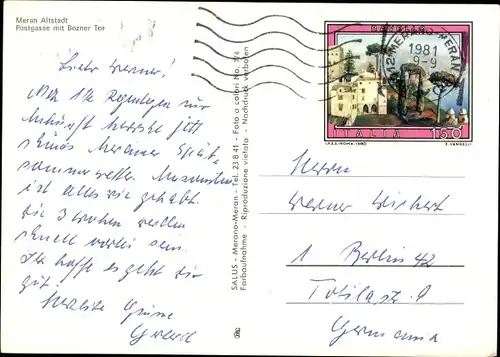 Meran Altstadt
Postgasse mit Bozner Tor
Lieber Werner!
Nach 1½ Regentagen zur
Ankunft herrscht jetzt
schönes Meraner Spät-
sommerwetter. Ansonsten
ist alles wie gehabt.
Die 3 Wochen werden
schnell vorbei sein.
Ich hoffe es geht dir
gut.
Herzliche Grüsse
Gerd
SALUS - Merano-Meran - Tel. 23 8 41 - Foto a colori No. 774
Farbaufnahme - Riproduzione vietata - Nachdruck verboten
RAVELLO
MERANO MERAN
1981
9-9
12
ITALIA 150
I.P.Z.S.-ROMA-1980 E. VANGELLI
Herrn
Werner
1 Berlin 42
Totilastr. 9
Germania